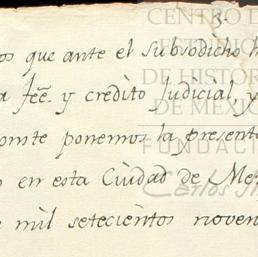 3.
os que ante el subsodicho h
a feé. y credito Judicial, y
onste ponemos la presente
o en esta Ciudad de Me
e mil setecientos noven
CENTRO DE
ESTUDIOS
DE HISTOR
DE MEXICO
FUNDACIÓN
Carlos